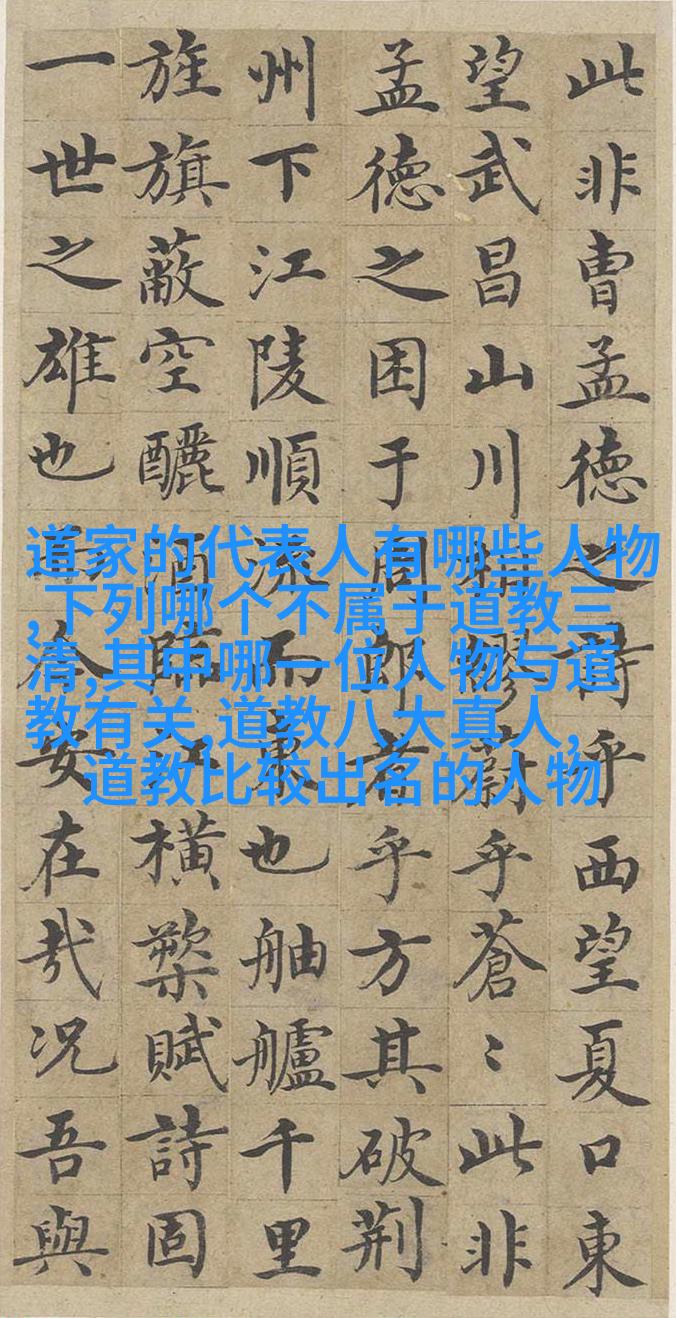 此非曹孟德之詩乎西望夏口東
望武昌山川相繆蔚乎蒼〻此非
孟德之困于周郎者乎方其破荊
州下江陵順流而東也舳艫千里
旌旗蔽空釃酒臨江橫槊賦詩固
一世之雄也而今安在哉况吾與
道家的代表人有哪些人物
,下列哪个不属于道教三
清,其中哪一位人物与道
教有关,道教八大真人,
道教比较出名的人物